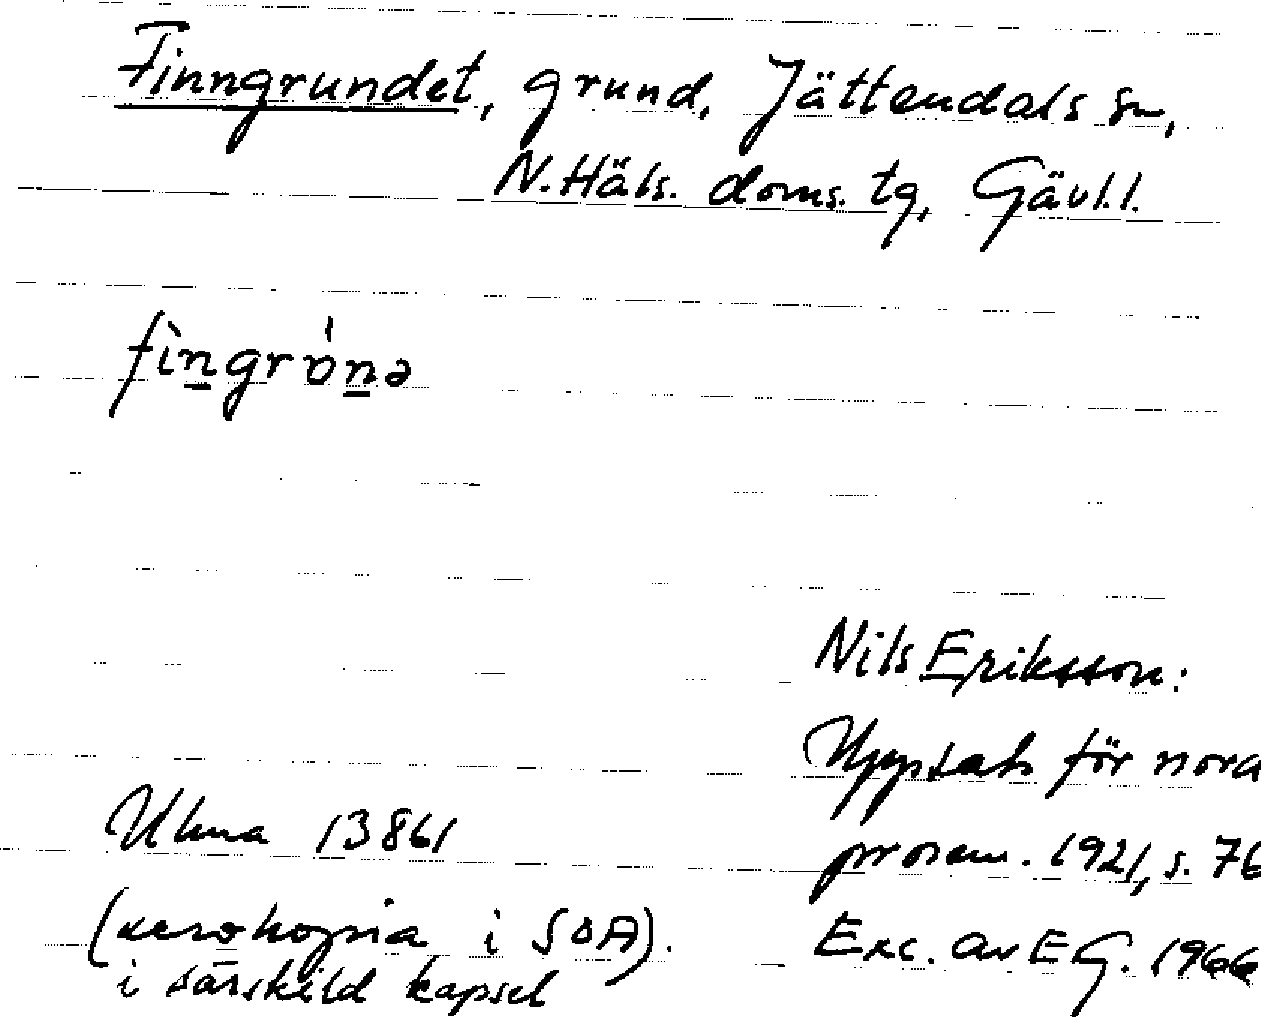 Finngrundet, grund, Jättendals sn,
N. Häls. doms. tg, Gävl. l.
fìngrǿnə
Nils Eriksson:
Uppsats för nora
prosem. 1921, s. 76
Exc. av E G. 1966
Ulma 13861
(xerokopia i SOA).
i särskild kapsel